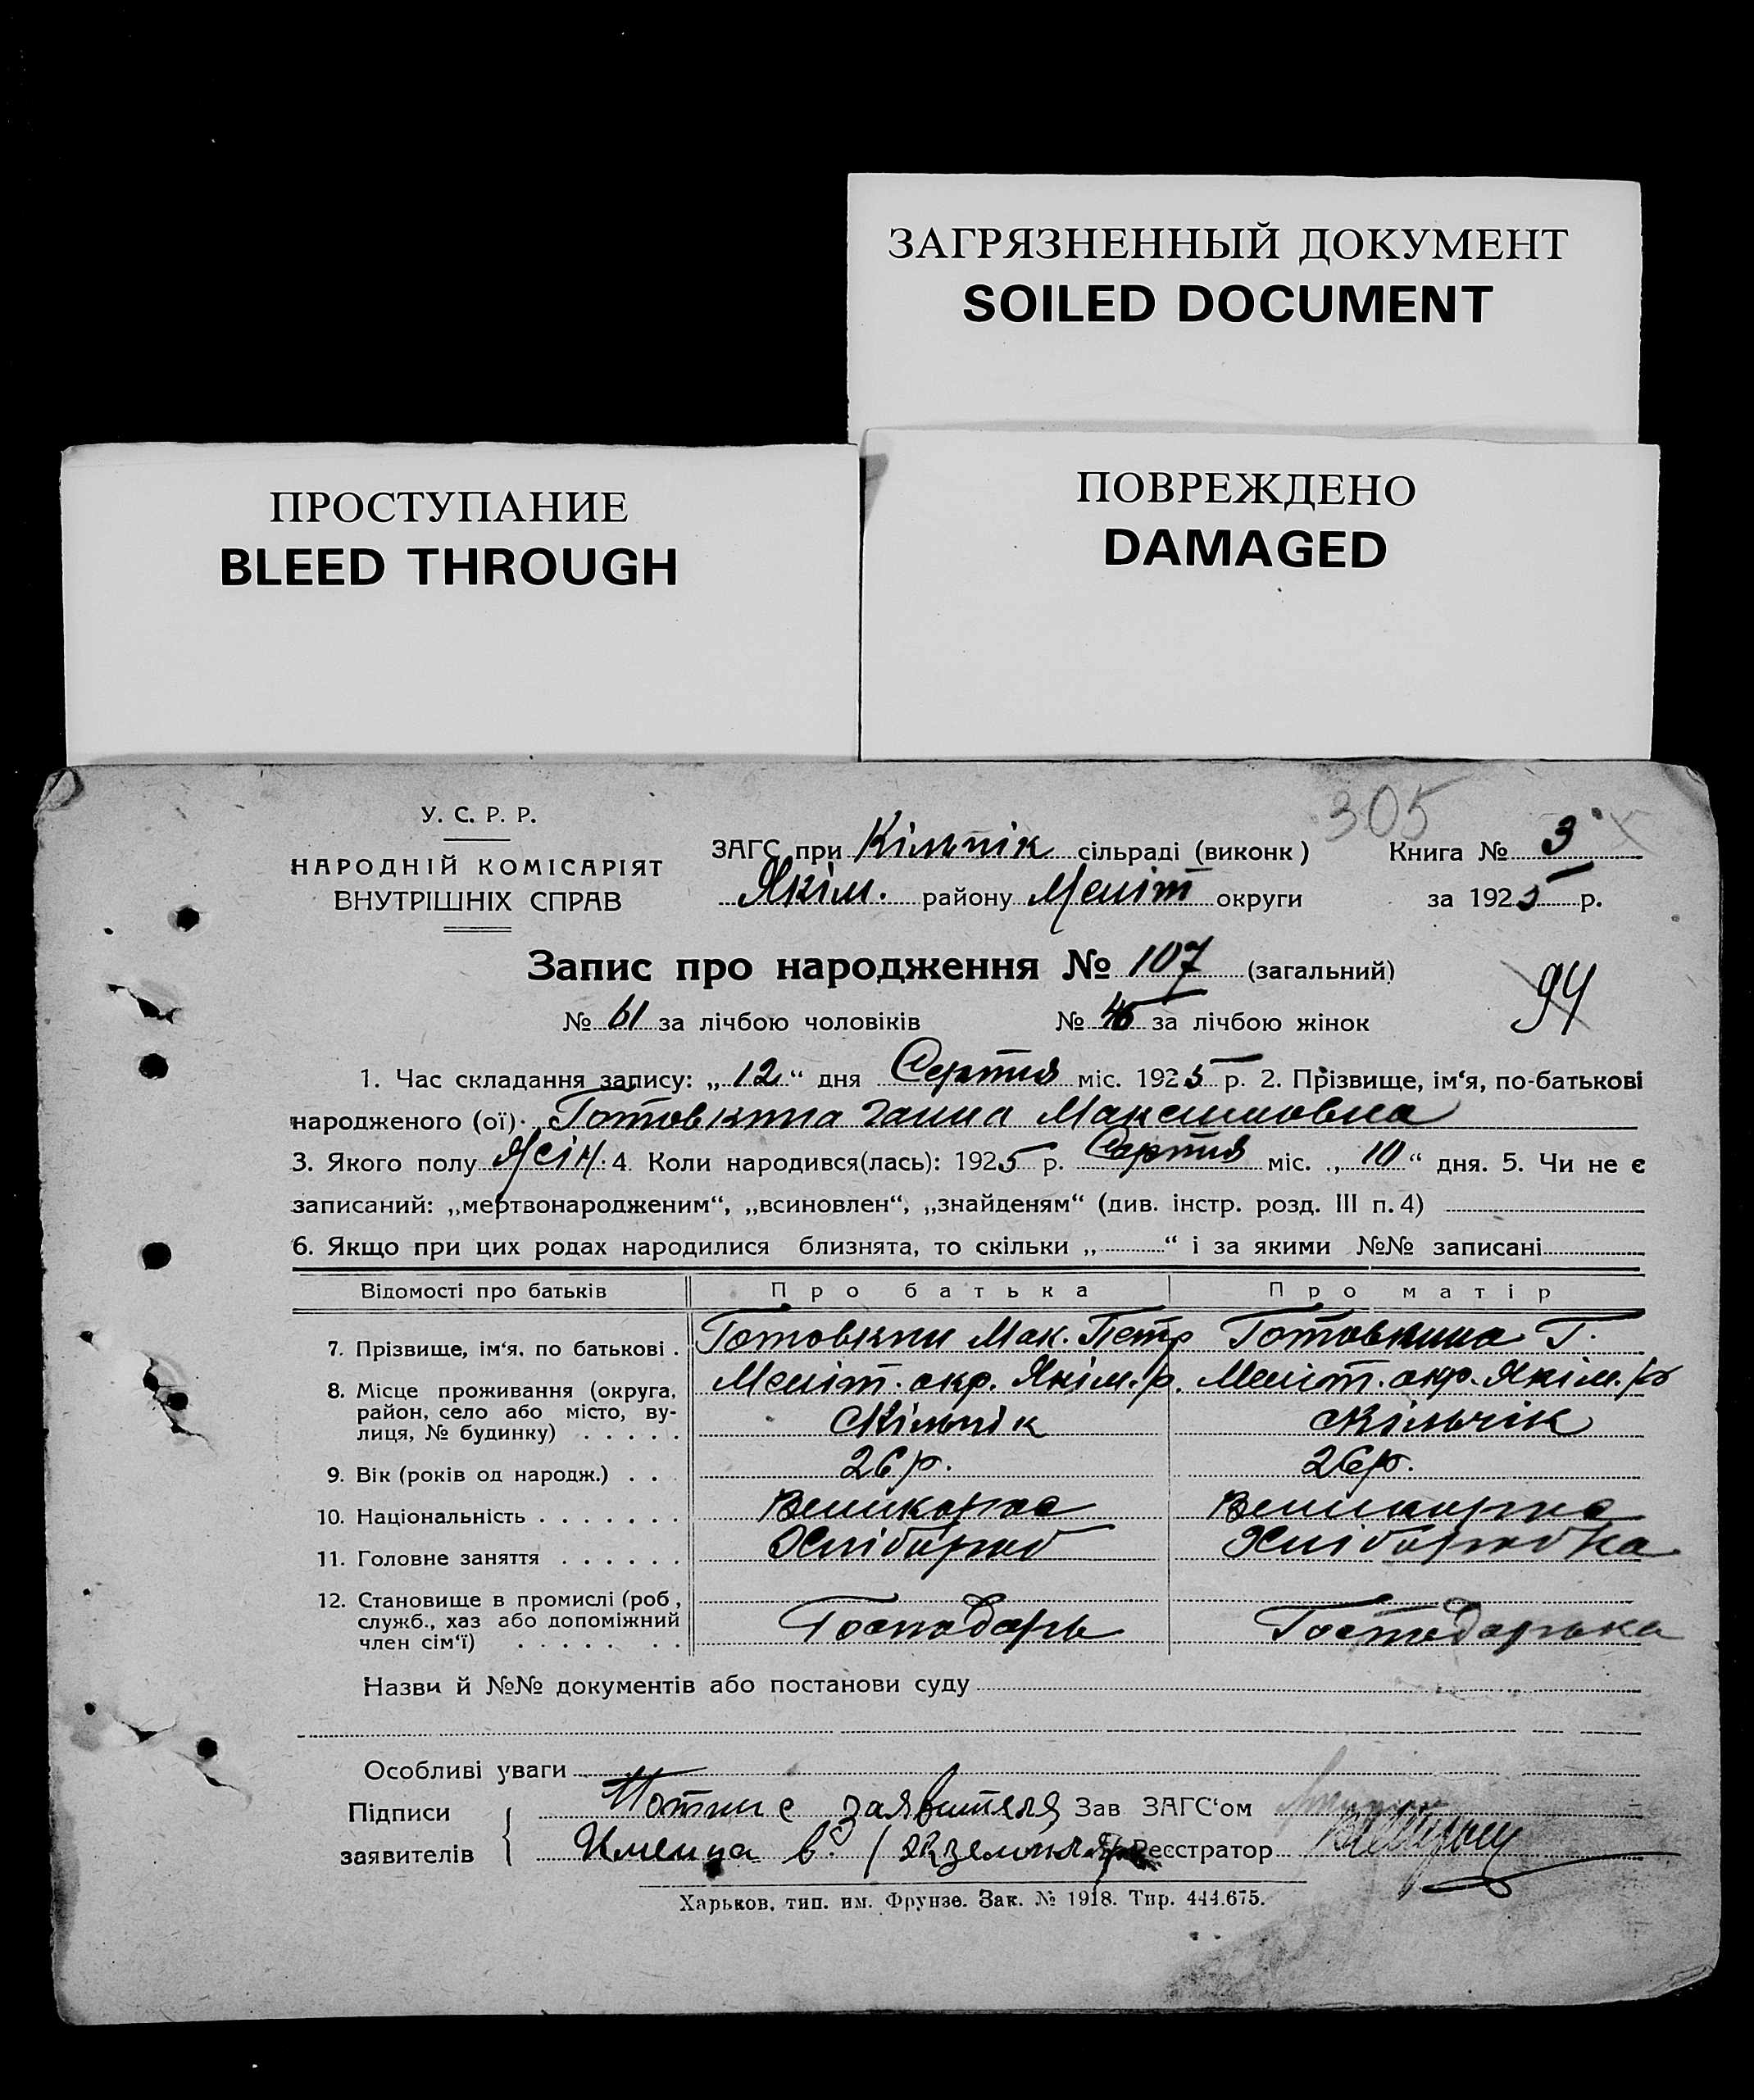 ЗАГРЯЗНЕННЫЙ ДОКУМЕНТ
SOILED DOCUMENT
ПРОСТУПАНИЕ
BLEED THROUGH
ПОВРЕЖДЕНО
DAMAGED
305
У. С. Р. Р.
НАРОДНІЙ КОМІСАРІЯТ
ВНУТРІШНІХ СПРАВ
ЗАГС при Кільчік сільраді (виконк) Книга № 3
Якім. району Меліт округи за 1925 р.
Запис про народження № 107 (загальний)
94
№ 61 за лічбою чоловіків № 46 за лічбою жінок
1. Час складання запису: „12“ дня Серпня міс. 1925 р. 2. Прізвище, ім‘я, по-батькові
народженого (ої) Готовкина Ганна Максимовна
3. Якого полу Жін. 4. Коли народився(лась): 1925 р. Серпня міс. „10“ дня. 5. Чи не є
записаний: „мертвонародженим“, „всиновлен“, „знайденям“ (див. інстр. розд. III п. 4)
6. Якщо при цих родах народилися близнята, то скільки „ “ і за якими №№ записані
Відомості про батьків Про батька Про матір
7. Прізвище, ім‘я, по батькові . Готовкин Мак. Петр Готовкина Г.
8. Місце проживання (округа, район, село або місто, вулиця, № будинку) . . . . . Меліт. окр. Якім. р. Меліт. окр. Якім. р
Кільчік Кільчік
9. Вік (років од народж.) . . . 26 р. 26 р.
10. Національність . . . . . . . Великорос Великорос
11. Головне заняття . . . . . . Хлібороб Хліборобка
12. Становище в промислі (роб, служб., хаз або допоміжний член сім‘ї) . . . . . . . Господарь Господарька
Назви й №№ документів або постанови суду
Особливі уваги
Підписи заявителів
Потпис заявителя Зав ЗАГС‘ом
Имеица в 1 екземпляр Реєстратор
Харьков, тип. им. Фрунзе. Зак. № 1918. Тир. 444.675.